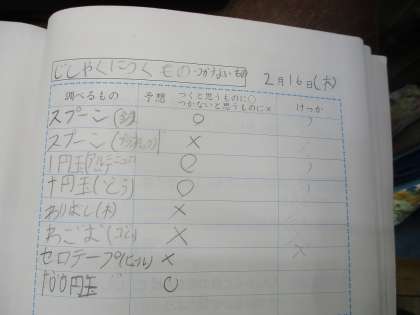 じしゃくにつくもの つかないもの 2月16日(木)
調べるもの 予想 つくと思うものに○ つかないと思うものに× けっか
スプーン(金ぞく) ○
スプーン(プラスチック) ×
1円玉(アルミニウム) ○
十円玉(どう) ○
わりばし(木) ×
わごむ(ゴム) ×
セロテープ(ビニール) × ×
100円玉 ○